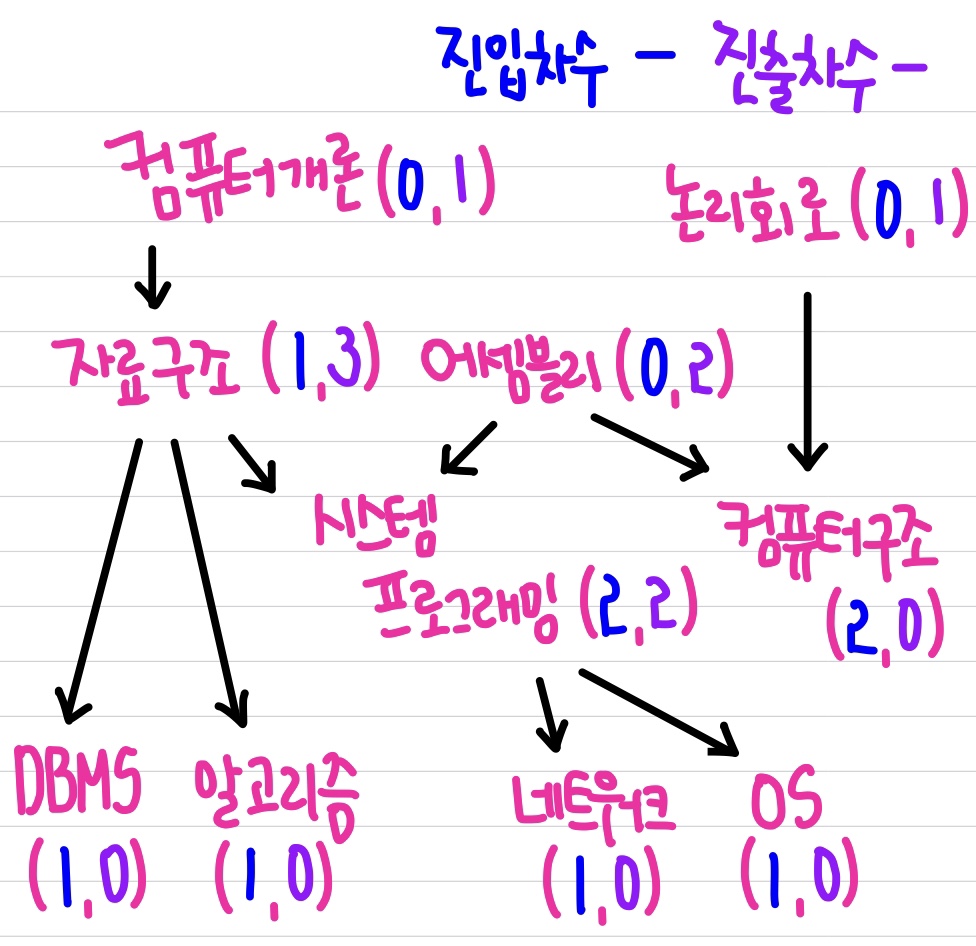 진입차수 - 진출차수 -
컴퓨터개론 (0,1)
논리회로 (0,1)
자료구조 (1,3)
어셈블리 (0,2)
시스템
프로그래밍 (2,2)
컴퓨터구조
(2,0)
DBMS
(1,0)
알고리즘
(1,0)
네트워크
(1,0)
OS
(1,0)